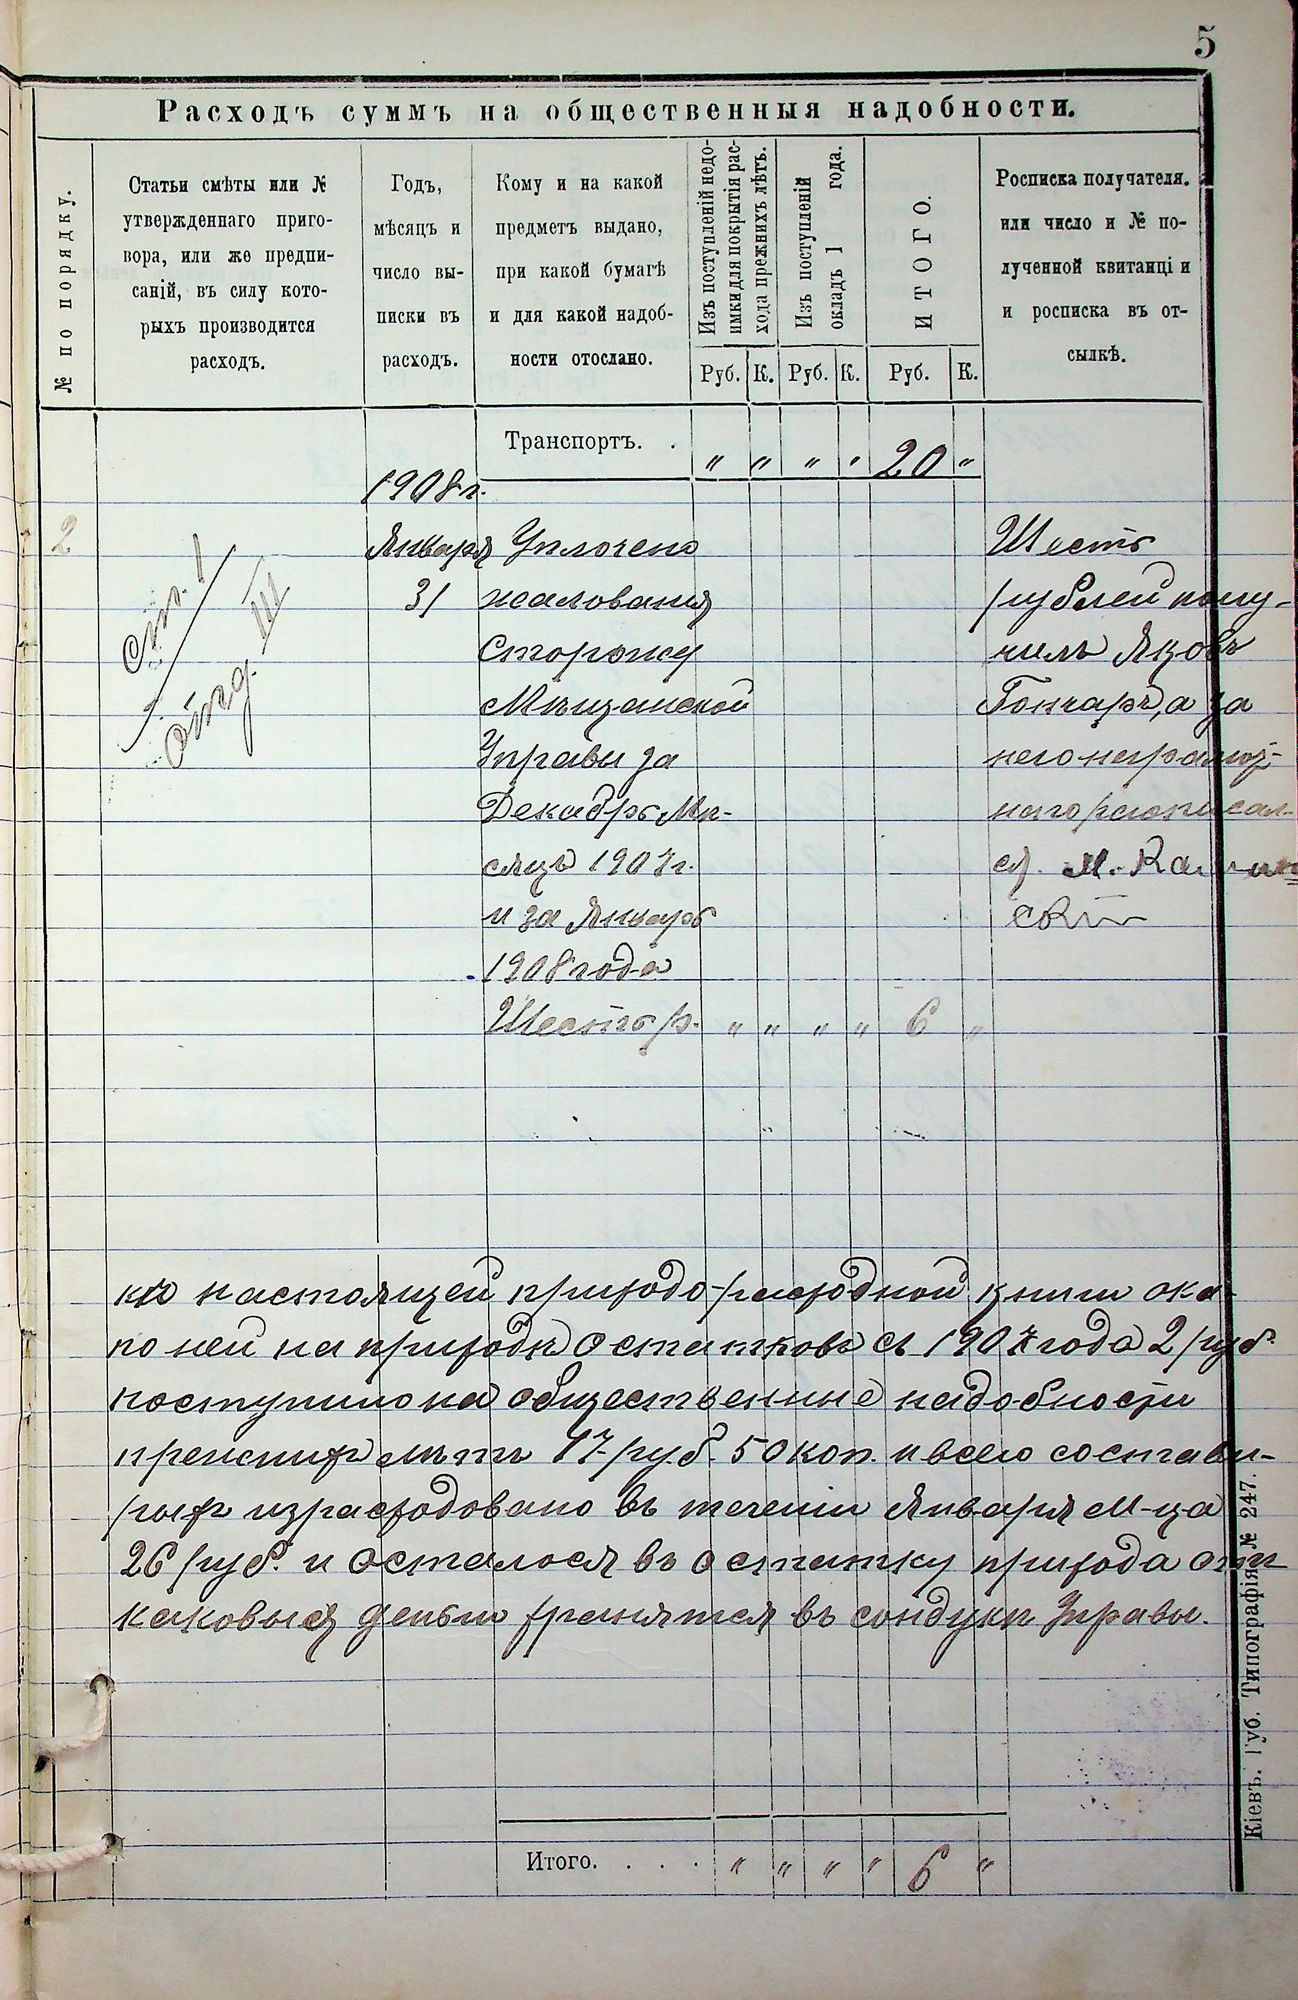 5
Расходъ суммъ на общественныя надобности.
№ по порядку.
Статьи смѣты или №
утвержденнаго приго-
вора, или же предпи-
саній, въ силу кото-
рыхъ производится
расходъ.
Годъ,
мѣсяцъ и
число вы-
писки въ
расходъ.
Кому и на какой
предметъ выдано,
при какой бумагѣ
и для какой надоб-
ности отослано.
Изъ поступленій недо-
имки для покрытія рас-
хода прежнихъ лѣтъ.
Изъ поступленій
окладъ 1 года.
ИТОГО.
Росписка получателя.
или число и № по-
лученной квитанціи
и росписка въ от-
сылкѣ.
Руб. К. Руб. К. Руб. К.
Транспортъ. . „ „ „ „ 20 „
1908 г.
2
ст. 1
отд. III
Января
31
Уплочено
жалования
Сторожу
Мѣщанской
Управы за
Декабрь Мѣ-
сяцъ 1907 г.
и за Январь
1908 года
Шесть р. „ „ „ „ 6 „
Шесть
рублей полу-
чилъ Яковъ
Гончаръ, а за
него неграмот-
наго расписал-
ся М.
ский
по настоящей приходо-расходной книги ока-
по ней на приходѣ остатковъ съ 1907 года 2 руб.
поступило на общественные надобности
прежнихъ лѣтъ 17 руб. 50 коп. и всего состави-
рыхъ израсходовано въ течении Января М-ца
26 руб. и осталося въ остатку прихода
каковыя деньги хранятся въ сондукѣ Управы.
Итого. . . . „ „ „ „ 6 „
Кіевъ. Губ. Типографія № 247.